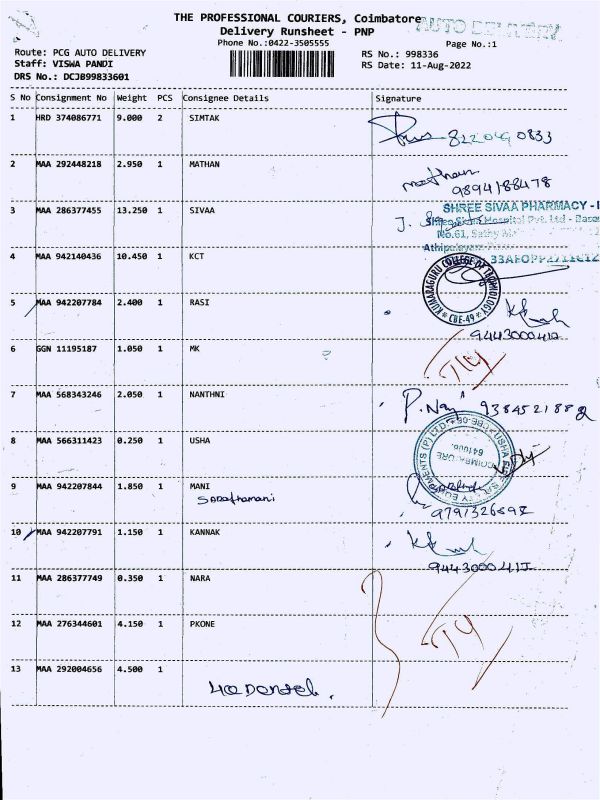 THE PROFESSIONAL COURIERS, Coimbatore
AUTO DELIVERY
Delivery Runsheet - PNP
Phone No.:0422-3505555
Page No.:1
Route: PCG AUTO DELIVERY
RS No.: 998336
Staff: VISWA PANDI
RS Date: 11-Aug-2022
DRS No.: DCJB99833601
S No Consignment No Weight PCS Consignee Details Signature
1 HRD 374086771 9.000 2 SIMTAK
2 MAA 292448218 2.950 1 MATHAN
mathan
9894188478
3 MAA 286377455 13.250 1 SIVAA
SHREE SIVAA PHARMACY - I
No.61, Sathy
4 MAA 942140436 10.450 1 KCT
KUMARAGURU COLLEGE OF TECHNOLOGY
* CBE-49 *
5 MAA 942207784 2.400 1 RASI
6 GGN 11195187 1.050 1 MK
7 MAA 568343246 2.050 1 NANTHNI
8 MAA 566311423 0.250 1 USHA
COIMBATORE
9 MAA 942207844 1.850 1 MANI
10 MAA 942207791 1.150 1 KANNAK
11 MAA 286377749 0.350 1 NARA
12 MAA 276344601 4.150 1 PKONE
13 MAA 292004656 4.500 1